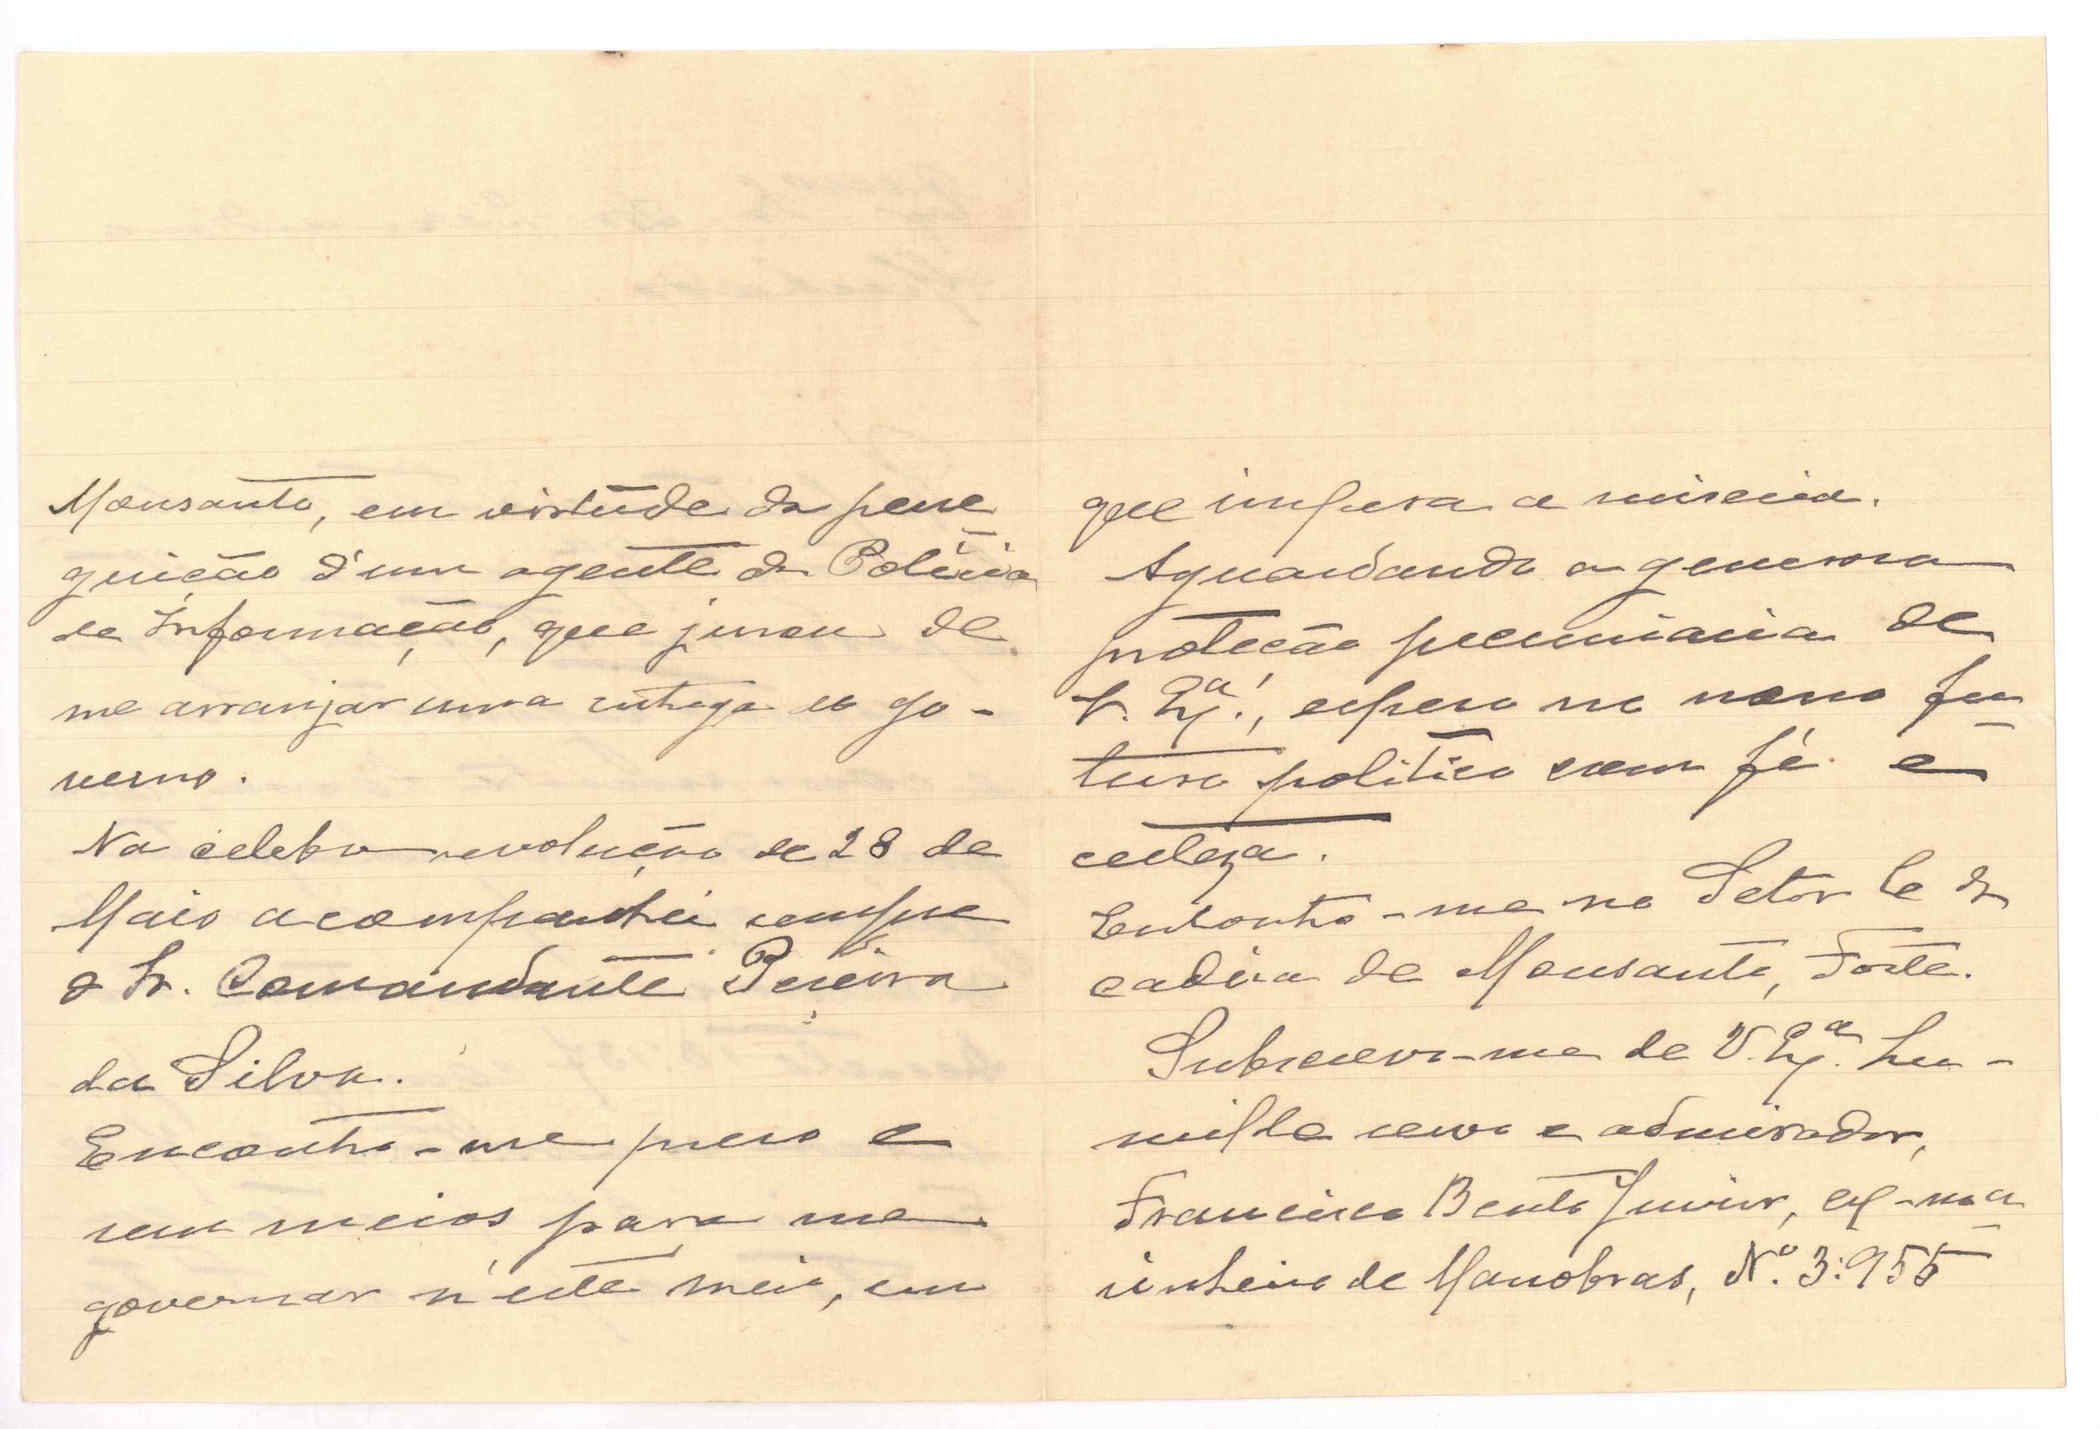 Monsanto, em virtude da perse
guição d'um agente da Policia
de Informação, que jurou de
me arranjar uma entrega ao go-
verno.
Na celebre revolução de 28 de
Maio acompanhei sempre
o Sr. Comandante Pereira
da Silva.
Encontro-me preso e
sem meios para me
governar n'este meio, em
que impera a miseria.
Aguardando a generosa
proteção pecuniaria de
V. Exª., espero no nosso fu
turo politico com fé e
certeza.
Encontro-me no Setor C da
cadeia de Monsanto, Forte.
Subscrevo-me de V. Exª. hu-
milde servo e admirador,
Francisco Bento Junior, ex-ma
rinheiro de Manobras, Nº. 3:955